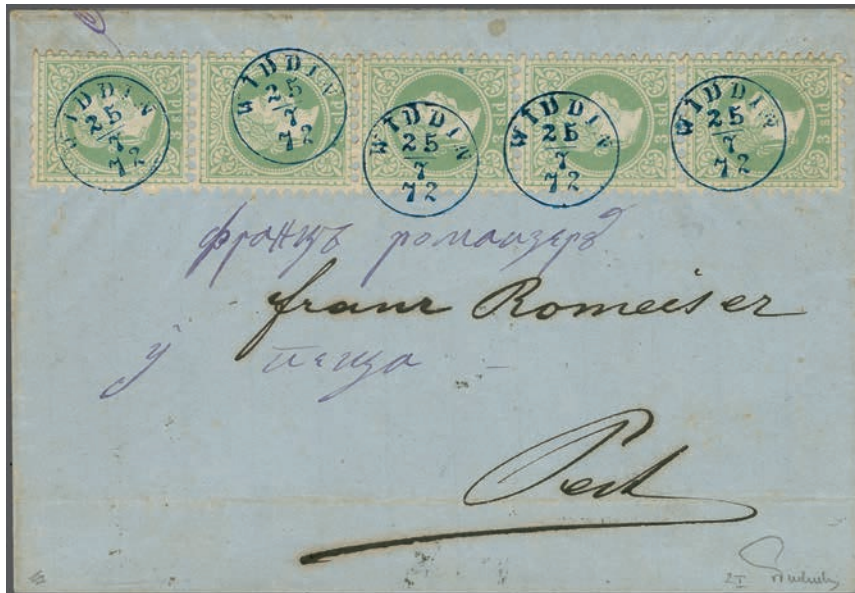 WIDDIN 25/7 72 WIDDIN 25/7 72 WIDDIN 25/7 72 WIDDIN 25/7 72 WIDDIN 25/7 72
3 sld 3 sld 3 sld 3 sld 3 sld
францъ ромаизеръ
franz Romeiser
у пеща
Pest